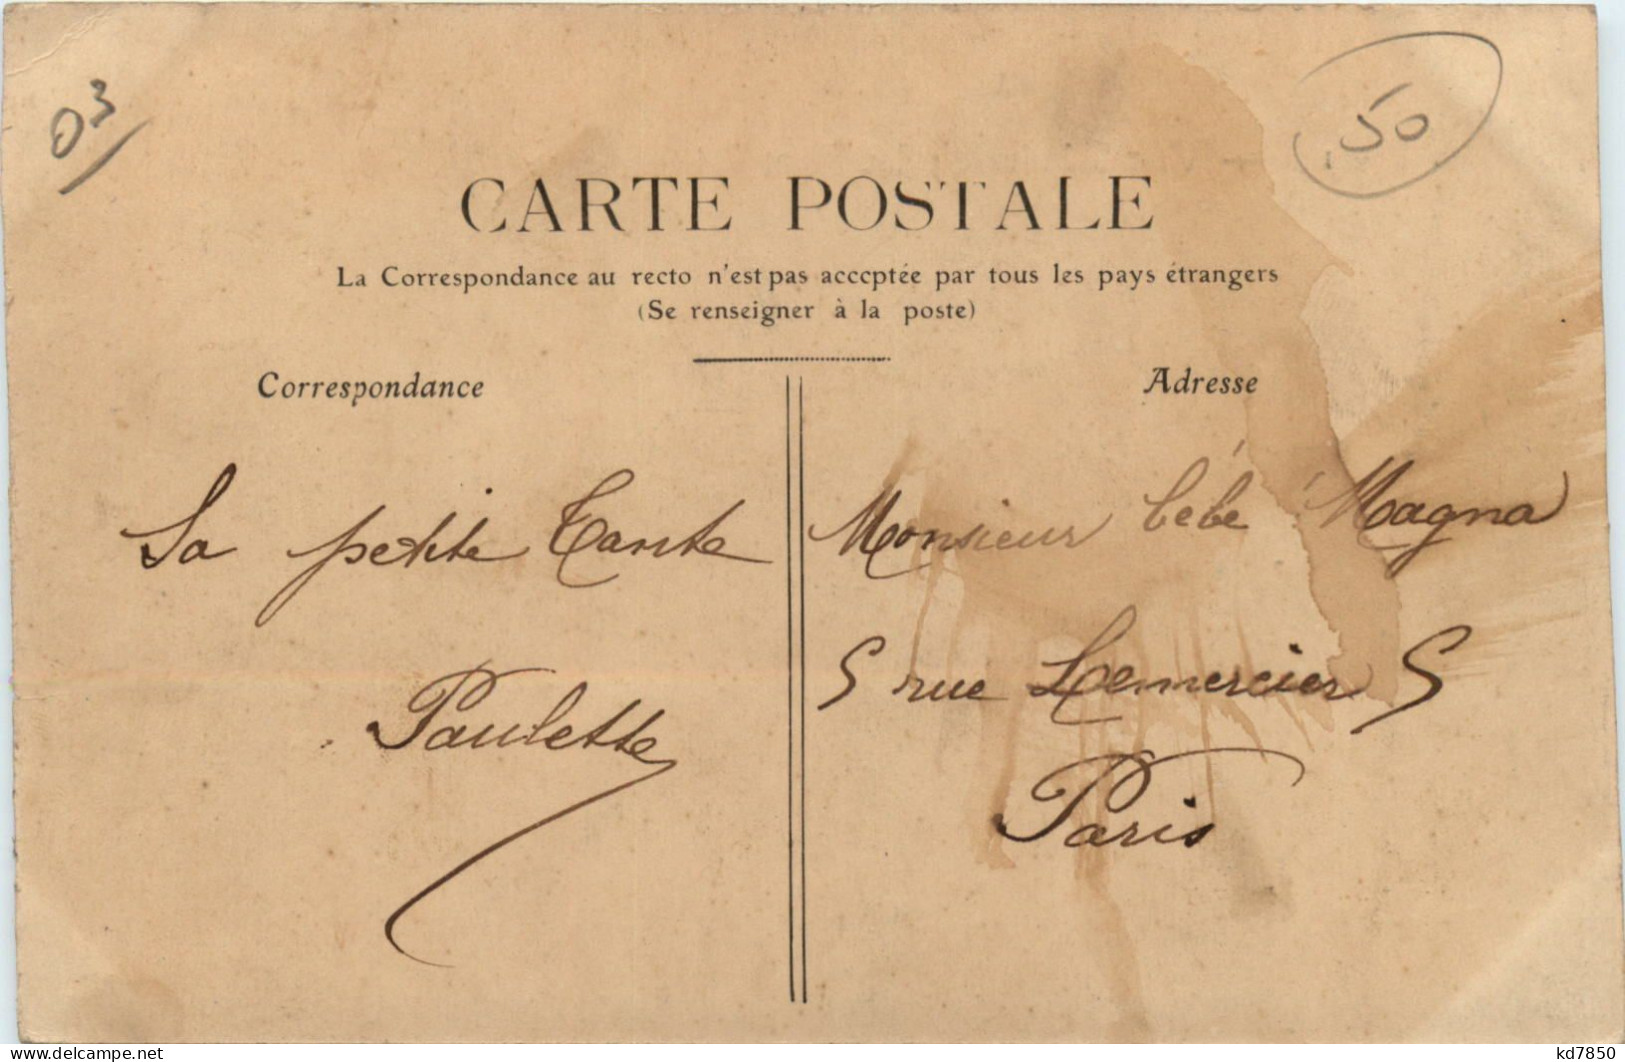 03/
.50
CARTE POSTALE
La Correspondance au recto n'est pas acceptée par tous les pays étrangers
(Se renseigner à la poste)
Correspondance
Adresse
Sa petite Tante
Paulette
Monsieur bébé Magna
5 rue Lemercier 5
Paris
www.delcampe.net
kd7850